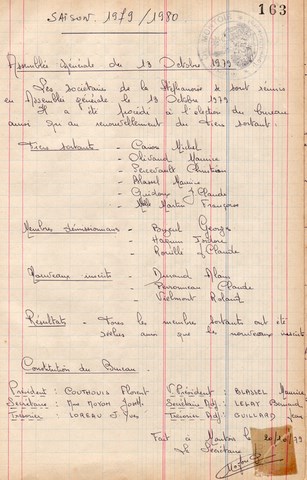 163
SAISON. 1979 / 1980
Assemblée générale du 19 Octobre 1979
Les societaire de la Stéphanoise se sont réunis
en Assemblée générale le 19 Octobre 1979
Il a été procédé à l'election du bureau
ainsi qu'au renouvellement du tiers sortant.
Tiers sortants - Michel
- Maurice
- Christian
- Blassel Maurice
- J Claude
- Melle Martin Françoise
Membres démissionnaires - Georges
- Isidore
- J Claude
Nouveaux inscrits - Durand Alain
- Claude
- Vielmont Roland
Résultats - Tous les membre sortants ont été
réélus ainsi que les nouveaux inscrits
Constitution du Bureau.
Président : COUTHOUIS Florent V. Président : BLASSEL Maurice
Secretaire : Mme MOYON Secretaire Adj : LERAY Bernard
Trésorier : LOREAU Yves Trésorier Adj : GUILLARD Jean
Fait à Nantes le 20/10/79
Le Secrétaire